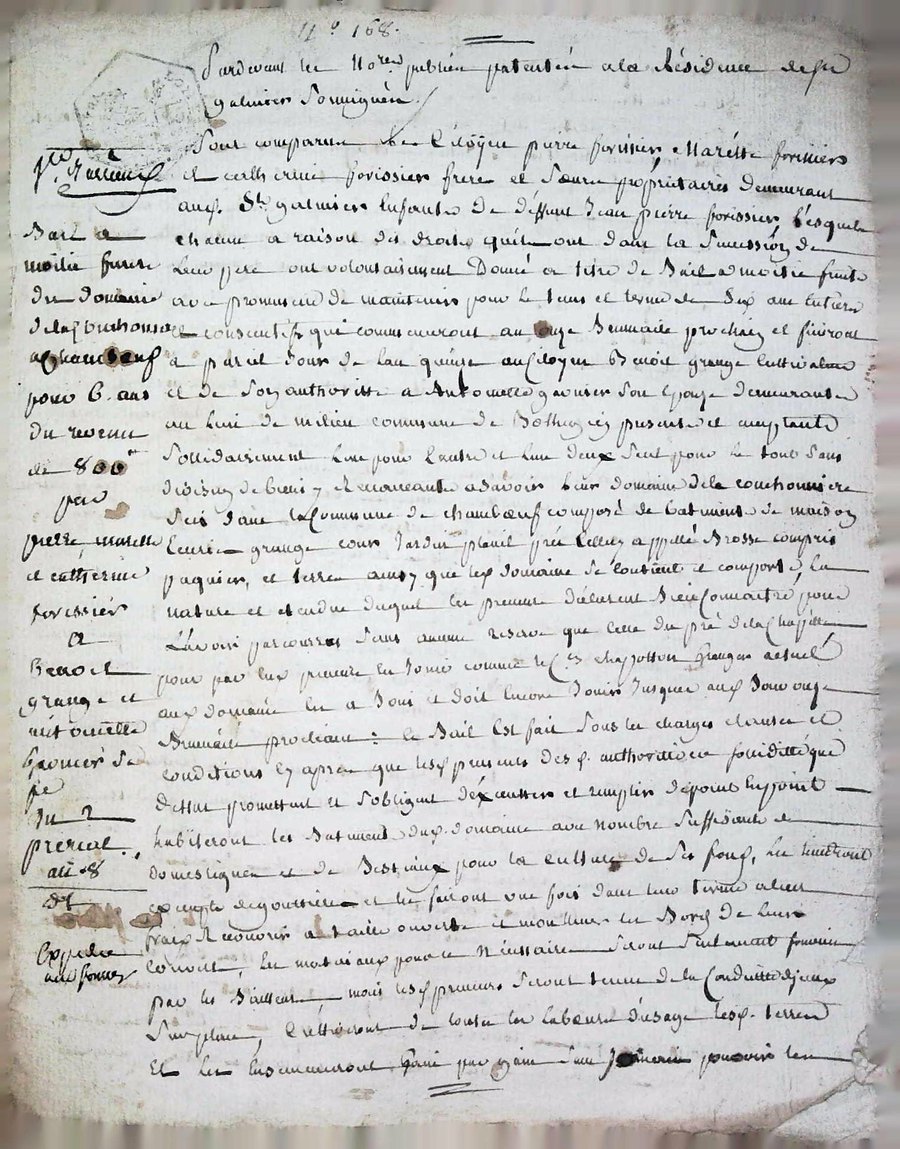 N° 168.
Pardevant les No.res publics patentés a la Résidence de St
galmier soussignés
Sont comparus le Citoyen pierre forissier Mariette forissier
et catherine forissier frere et Sœurs propriétaires demeurant
aud. St galmier Enfants de deffunt Jean pierre forissier Lesquels
chacun a raison des droits quils ont dans la Succession de
Leur pere ont volontairement Donné a titre de Bail a moitié fruits
avec promesse de maintenir pour le tems et terme de Six ans Entiers
et consecutifs qui commenceront au onze Brumaire prochain et finiront
a pareil Jour de Lan quinze au Citoyen Benoit grange Cultivateur
et de Son authorité a Antoinette Son Epouse demeurants
au Lieu de milieu commune de presents et acceptants
Sollidairement Lun pour Lautre et Lun deux Seul pour le tout Sans
division de biens y Renonceants a Savoir Leur domaine de la couchonniere
Scis dans la Commune de chambœuf composé de batiments de maison
Ecurie grange cour Jardin pré appellé Brosse compris
paquier, et terres ainsy que led. domaine Se Contient et comporte, La
nature et etendue duquel les preneurs déclarent Bien Connaitre pour
Lavoir parcourru Sans aucune reserve que celle du pré de la Chapelle
pour par Eux preneurs En Jouir comme le C.en chapotton granger actuel
aud. domaine En a Joui et doit Encore Jouir Jusques aud. Jour onze
Brumaire prochain: le Bail Est fait Sous les charges clauses et
conditions cy apres que lesd. preneurs desd. authorité que
Dessus promettent et Sobligent déxécutter et remplir de point En point
habiteront les Batiments dud. domaine avec nombre Suffisants de
domestiques et de Bestiaux pour la culture de Ses fonds, Les tiendront
exempts de gouttieres et les feront une fois dans leur terme a leurs
fraix Recouvrir a taille ouverte et les Bords de leurs
couverts, Les materiaux pour ce Nécessaires Seront Seulement fournis
par les Bailleurs mais lesd. preneurs Seront tenus de la Conduitte diceux
Sur place, Cultiveront de toutes les Labeurs dusage lesd. terres
Et Les Ensemenceront grain par grain Sans pouvoir Les
Bail a
moitié fruits
du domaine
de la Couchonniere
a Chambœuf
pour 6. ans
du revenu
de 800
par
pierre, mariette
et catherine
forissier
a
Benoit
grange et
antoinette
Sa
fe
Du 2
prerial
an 8
Expedié
aux